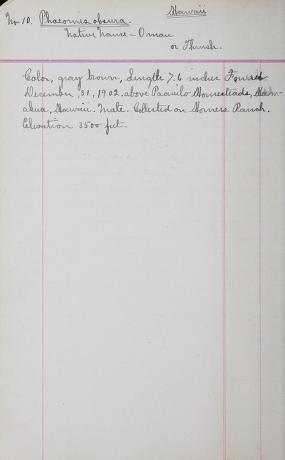 Hawaii
No 10. Phaeornis obscura.
Native Name - Omau
or Thrush.
Color, gray brown, Length 7.6 inches Forest
December, 31, 1902. above Paauilo Homesteads, Ham-
akua, Hawaii. Male. Collected on Horners Ranch.
Elevation 3500 feet.